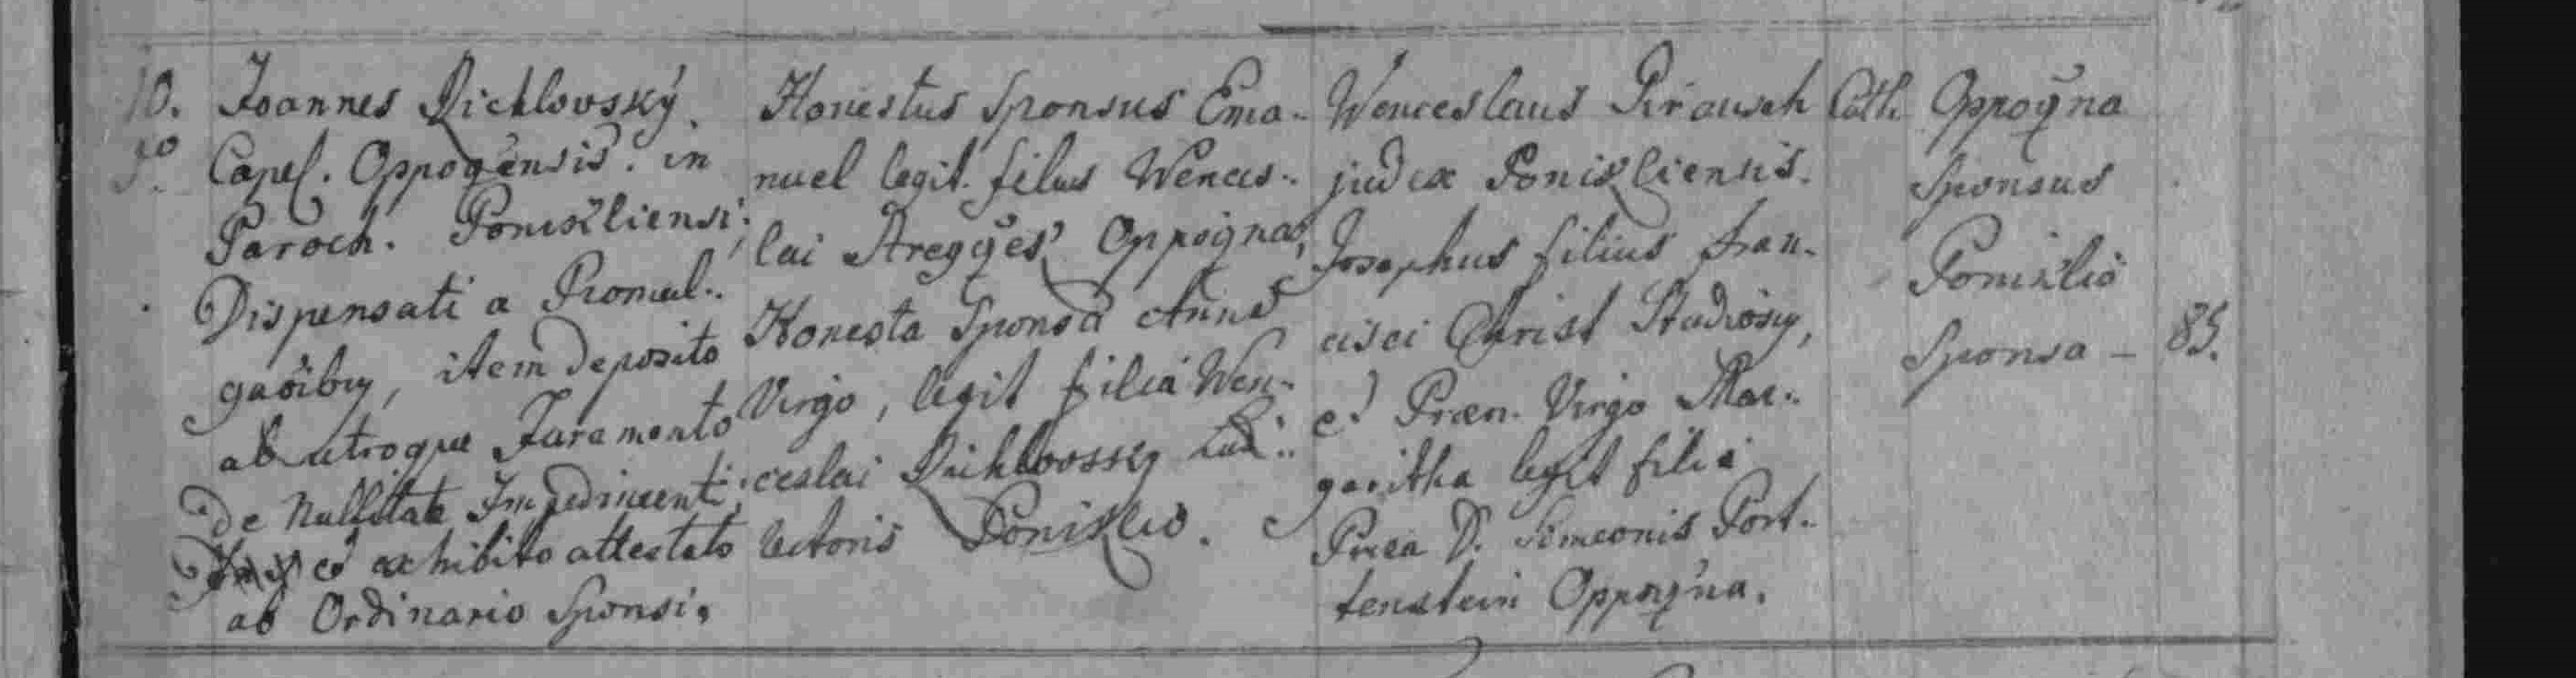 10. Joannes Dichlovský
Capel. Oppog̃ensis. in
Paroch. Ponikliensi;
Dispensati a Promul..
gaõibg, item deposito
ab utroque Juramento
de Nullitate Impedimenti,
et exhibito attestato
ab Ordinario Sponsi.
Honestus Sponsus Ema..
nuel legit. filius Wences..
lai Oppogna,
Honesta Sponsa Anna
Virgo, legit filia Wen..
ceslai Dichlovsky Lud..
lectoris
Wenceslaus Pirausch
judex
Josephus filius Fran..
cisci Christ Studiosg,
et Præn. Virgo Mar..
garitha legit filia
Præn D. Simeonis Port..
tenstein Oppog̃na.
Cath.
Oppog̃na
Sponsus
Sponsa – 85.